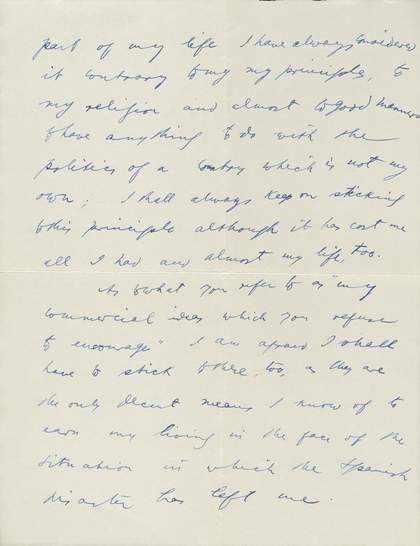 part of my life I have always considered
it contrary to my my principles, to
my religion and almost to good manners
to have anything to do with the
politics of a country which is not my
own; I shall always keep on sticking
to this principle although it has cost me
all I had and almost my life, too.
As to what you refer to as "my
commercial ideas which you refuse
to encourage" I am afraid I shall
have to stick to these, too, as they are
the only decent means I know of to
earn my living in the face of the
situation in which the Spanish
disaster has left me.